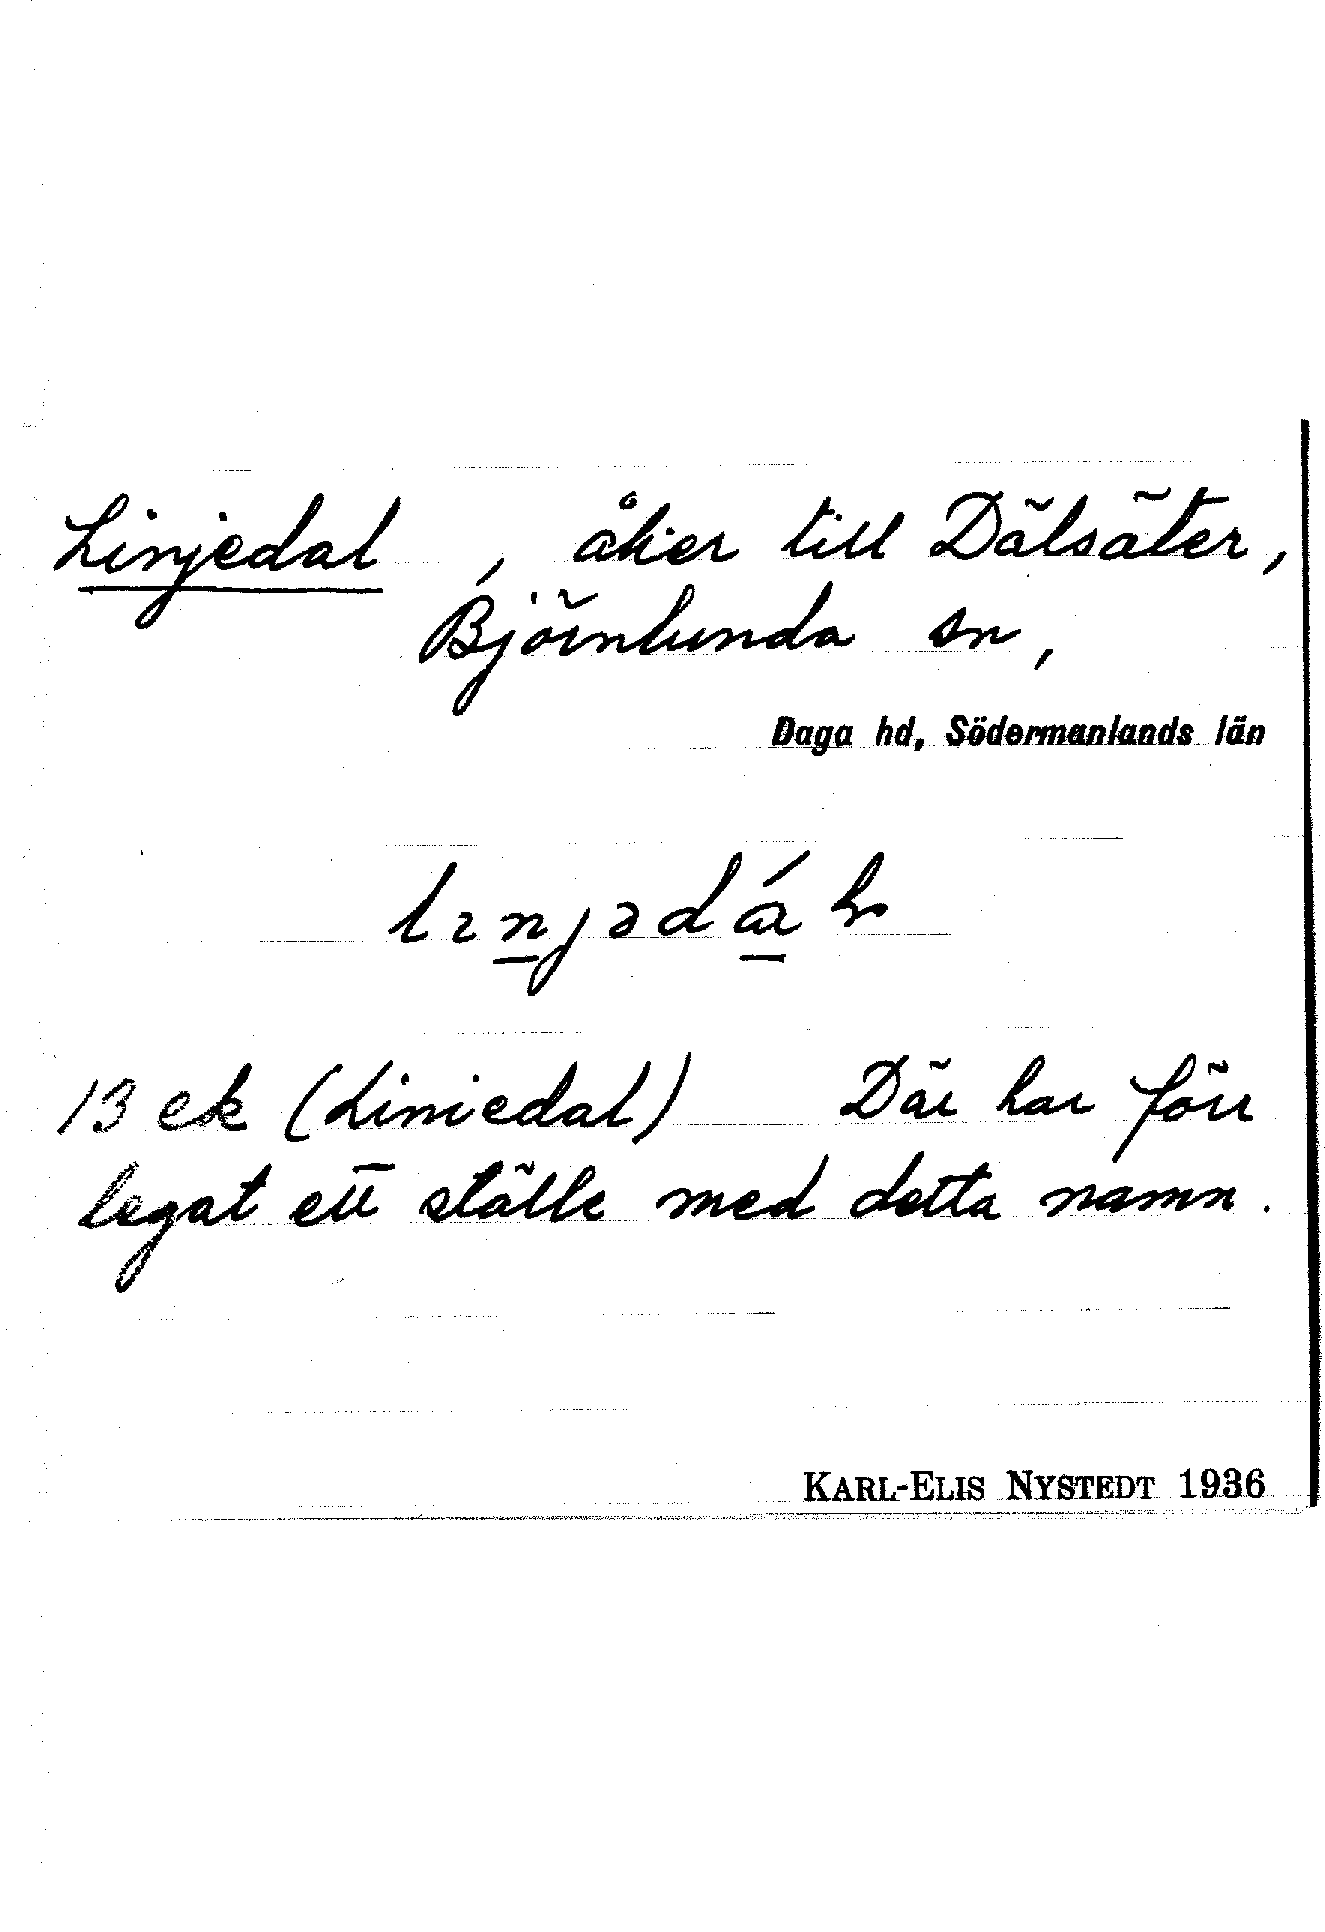 Linjedal, åker till Dälsäter,
Björnlunda sn,
Daga hd, Södermanlands län
lɪnjədáɭ
13 ek (Liniedal) Där har förr
legat ett ställe med detta namn.
KARL-ELIS NYSTEDT 1936